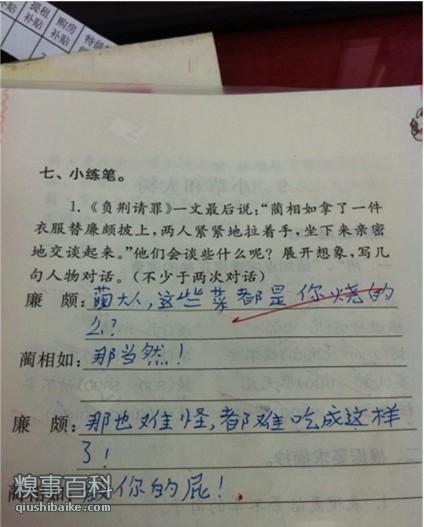 提租
补贴
购房
补贴
七、小练笔。
1.《负荆请罪》一文最后说:“蔺相如拿了一件
衣服替廉颇披上,两人紧紧地拉着手,坐下来亲密
地交谈起来。”他们会谈些什么呢?展开想象,写几
句人物对话。(不少于两次对话)
廉 颇:蔺大人,这些菜都是你烧的
么?
蔺相如:那当然!
廉 颇:那也难怪,都难吃成这样
了!
蔺相如:你的屁!
糗事百科
qiushibaike.com